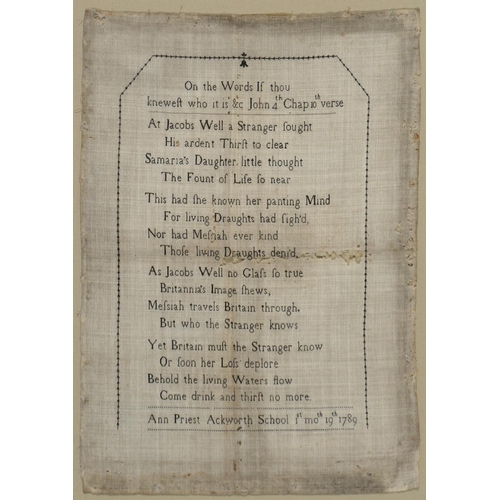 On the Words If thou
kneweſt who it is &c John 4th Chap 10th verse
At Jacobs Well a Stranger ſought
His ardent Thirſt to clear
Samaria's Daughter, little thought
The Fount of Life ſo near
This had ſhe known her panting Mind
For living Draughts had ſigh'd,
Nor had Meſsiah ever kind
Thoſe living Draughts deni'd.
As Jacobs Well no Glaſs ſo true
Britannia's Image ſhews,
Meſsiah travels Britain through,
But who the Stranger knows
Yet Britain muſt the Stranger know
Or ſoon her Loſs deplore
Behold the living Waters flow
Come drink and thirſt no more.
Ann Priest Ackworth School 1st moth 19th 1789